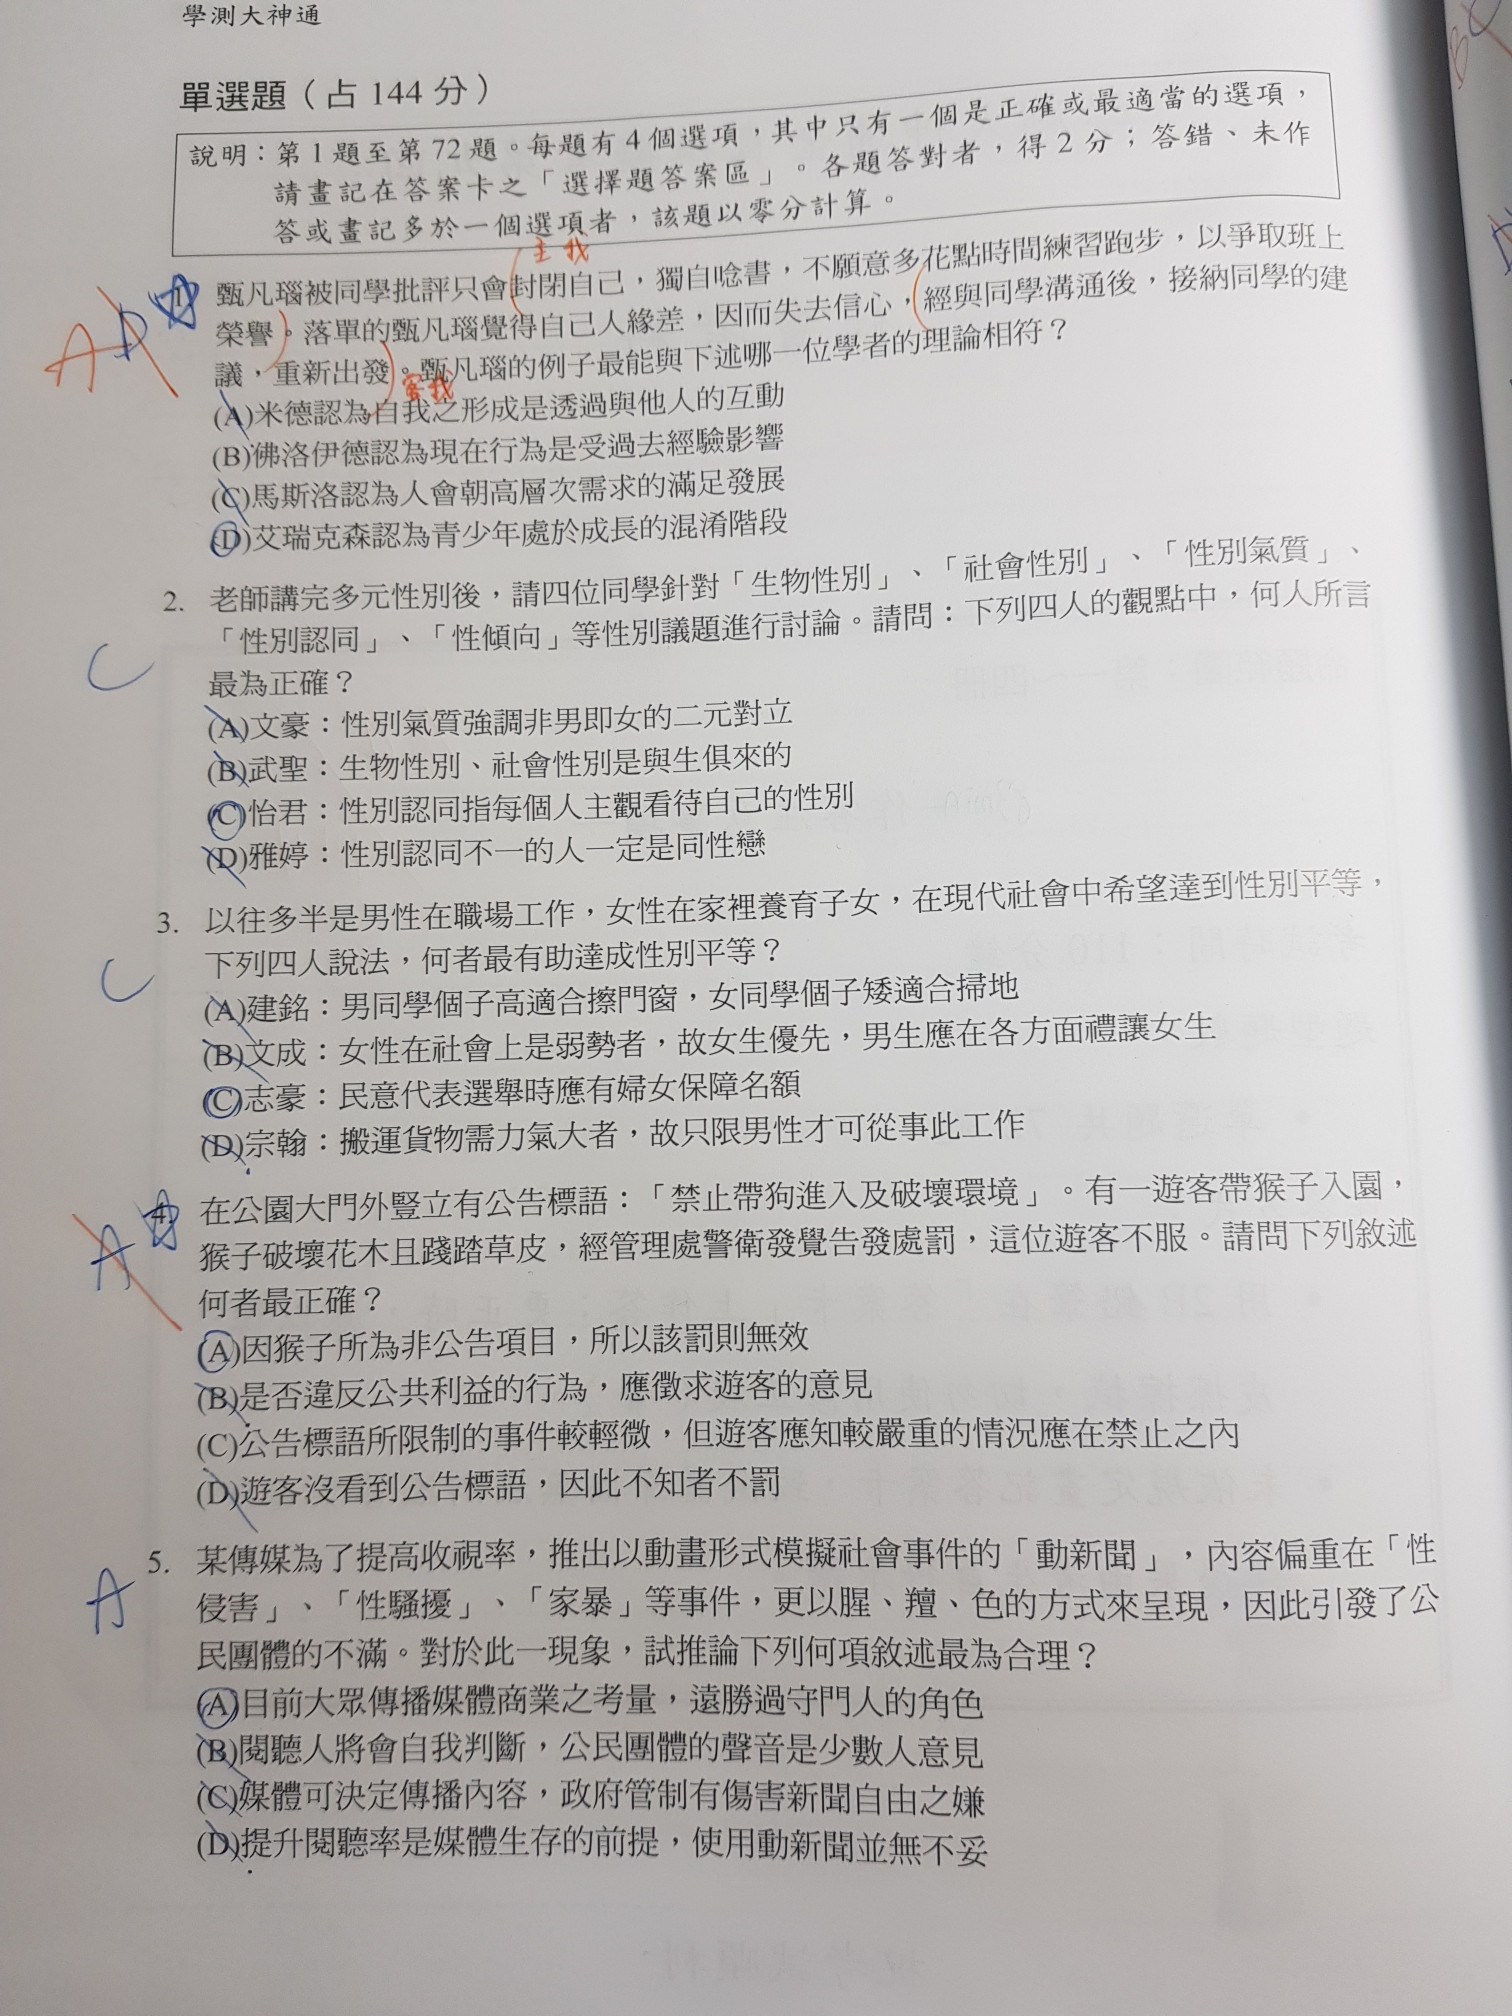 學測大神通
單選題（占 144 分）
說明：第 1 題至第 72 題。每題有 4 個選項，其中只有一個是正確或最適當的選項，
請畫記在答案卡之「選擇題答案區」。各題答對者，得 2 分；答錯、未作
答或畫記多於一個選項者，該題以零分計算。
主我
A D 1. 甄凡瑙被同學批評只會封閉自己，獨自唸書，不願意多花點時間練習跑步，以爭取班上
榮譽。落單的甄凡瑙覺得自己人緣差，因而失去信心，經與同學溝通後，接納同學的建
議，重新出發。甄凡瑙的例子最能與下述哪一位學者的理論相符？
客我
(A)米德認為自我之形成是透過與他人的互動
(B)佛洛伊德認為現在行為是受過去經驗影響
(C)馬斯洛認為人會朝高層次需求的滿足發展
(D)艾瑞克森認為青少年處於成長的混淆階段
2. 老師講完多元性別後，請四位同學針對「生物性別」、「社會性別」、「性別氣質」、
「性別認同」、「性傾向」等性別議題進行討論。請問：下列四人的觀點中，何人所言
C
最為正確？
(A)文豪：性別氣質強調非男即女的二元對立
(B)武聖：生物性別、社會性別是與生俱來的
(C)怡君：性別認同指每個人主觀看待自己的性別
(D)雅婷：性別認同不一的人一定是同性戀
3. 以往多半是男性在職場工作，女性在家裡養育子女，在現代社會中希望達到性別平等，
C 下列四人說法，何者最有助達成性別平等？
(A)建銘：男同學個子高適合擦門窗，女同學個子矮適合掃地
(B)文成：女性在社會上是弱勢者，故女生優先，男生應在各方面禮讓女生
(C)志豪：民意代表選舉時應有婦女保障名額
(D)宗翰：搬運貨物需力氣大者，故只限男性才可從事此工作
4. 在公園大門外豎立有公告標語：「禁止帶狗進入及破壞環境」。有一遊客帶猴子入園，
A 猴子破壞花木且踐踏草皮，經管理處警衛發覺告發處罰，這位遊客不服。請問下列敘述
何者最正確？
(A)因猴子所為非公告項目，所以該罰則無效
(B)是否違反公共利益的行為，應徵求遊客的意見
(C)公告標語所限制的事件較輕微，但遊客應知較嚴重的情況應在禁止之內
(D)遊客沒看到公告標語，因此不知者不罰
5. 某傳媒為了提高收視率，推出以動畫形式模擬社會事件的「動新聞」，內容偏重在「性
A 侵害」、「性騷擾」、「家暴」等事件，更以腥、羶、色的方式來呈現，因此引發了公
民團體的不滿。對於此一現象，試推論下列何項敘述最為合理？
(A)目前大眾傳播媒體商業之考量，遠勝過守門人的角色
(B)閱聽人將會自我判斷，公民團體的聲音是少數人意見
(C)媒體可決定傳播內容，政府管制有傷害新聞自由之嫌
(D)提升閱聽率是媒體生存的前提，使用動新聞並無不妥